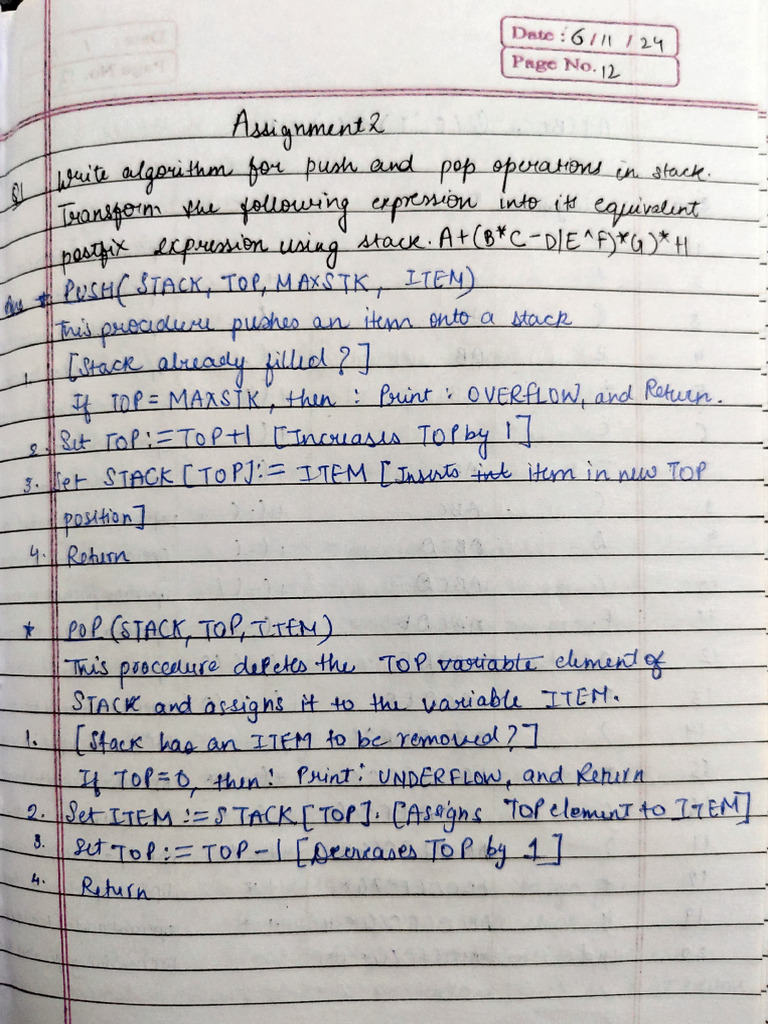 Date: 6/11/24
Page No. 12
Assignment 2
Q1 Write algorithm for push and pop operations in stack.
Transform the following expression into its equivalent
postfix expression using stack. A+(B*C-D/E^F)*G)*H
Ans * PUSH( STACK, TOP, MAXSTK, ITEM)
This procedure pushes an item onto a stack
1. [Stack already filled?]
If TOP = MAXSTK, then : Print : OVERFLOW, and Return.
2. Set TOP:=TOP+1 [Increases TOP by 1]
3. Set STACK [TOP]:= ITEM [Inserts int item in new TOP
position]
4. Return
* POP (STACK, TOP, ITEM)
This procedure deletes the TOP variable element of
STACK and assigns it to the variable ITEM.
1. [Stack has an ITEM to be removed?]
If TOP=0, then: Print: UNDERFLOW, and Return
2. Set ITEM := STACK [TOP]. [Assigns TOP element to ITEM]
3. Set TOP:= TOP-1 [Decreases TOP by 1]
4. Return